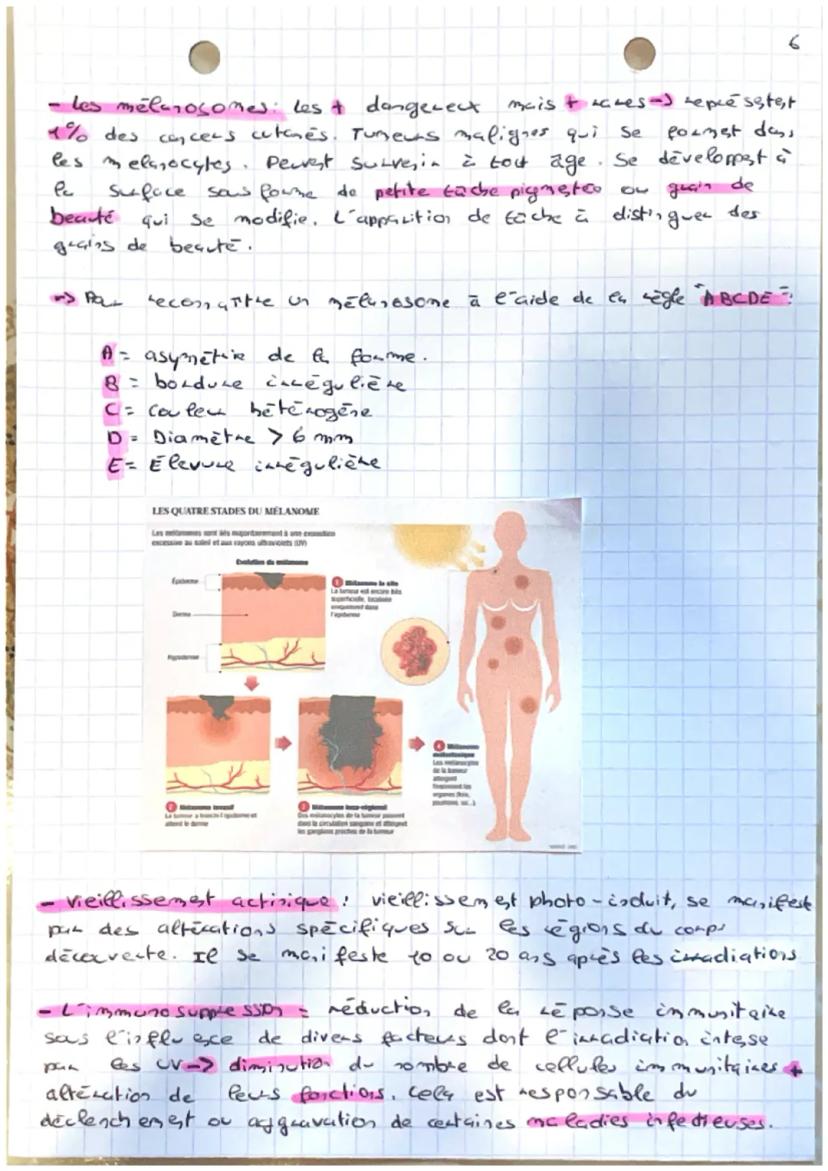 6
- Les mélanosomes: les + dangereux mais + rares -> représentent
1% des cancers cutanés. Tumeurs malignes qui se forment dans
les mélanocytes. Peuvent survenir à tout âge. Se développent à
la surface sous forme de petite tâche pigmentée ou grain de
beauté qui se modifie. L'apparition de tâche à distinguer des
grains de beauté.
-> Pour reconnaître un mélanosome à l'aide de la règle "ABCDE":
A = asymétrie de la forme.
B = bordure irrégulière
C = Couleur hétérogène
D = Diamètre > 6 mm
E = Élevure irrégulière
LES QUATRE STADES DU MÉLANOME
Les mélanomes sont dûs majoritairement à une exposition
excessive au soleil et aux rayons ultraviolets (UV)
Evolution du mélanome
Épiderme
Derme
Hypoderme
1 Mélanome in situ
La tumeur est encore très
superficielle, localisée
uniquement dans
l'épiderme
2 Mélanome invasif
La tumeur a franchi l'épiderme et
atteint le derme
3 Mélanome loco-régional
Des mélanocytes de la tumeur passent
dans la circulation sanguine et atteignent
les ganglions proches de la tumeur
4 Mélanome
métastasique
Les mélanocytes
de la tumeur
atteignent
finalement les
organes (foie,
poumons, os...)
- Vieillissement actinique: vieillissement photo-induit, se manifeste
par des altérations spécifiques sur les régions du corps
découverte. Il se manifeste 10 ou 20 ans après les irradiations
- L'immunosuppression = réduction de la réponse immunitaire
sous l'influence de divers facteurs dont l'irradiation intense
par les UV -> diminution du nombre de cellules immunitaires +
altération de leurs fonctions. Cela est responsable du
déclenchement ou aggravation de certaines maladies infectieuses.